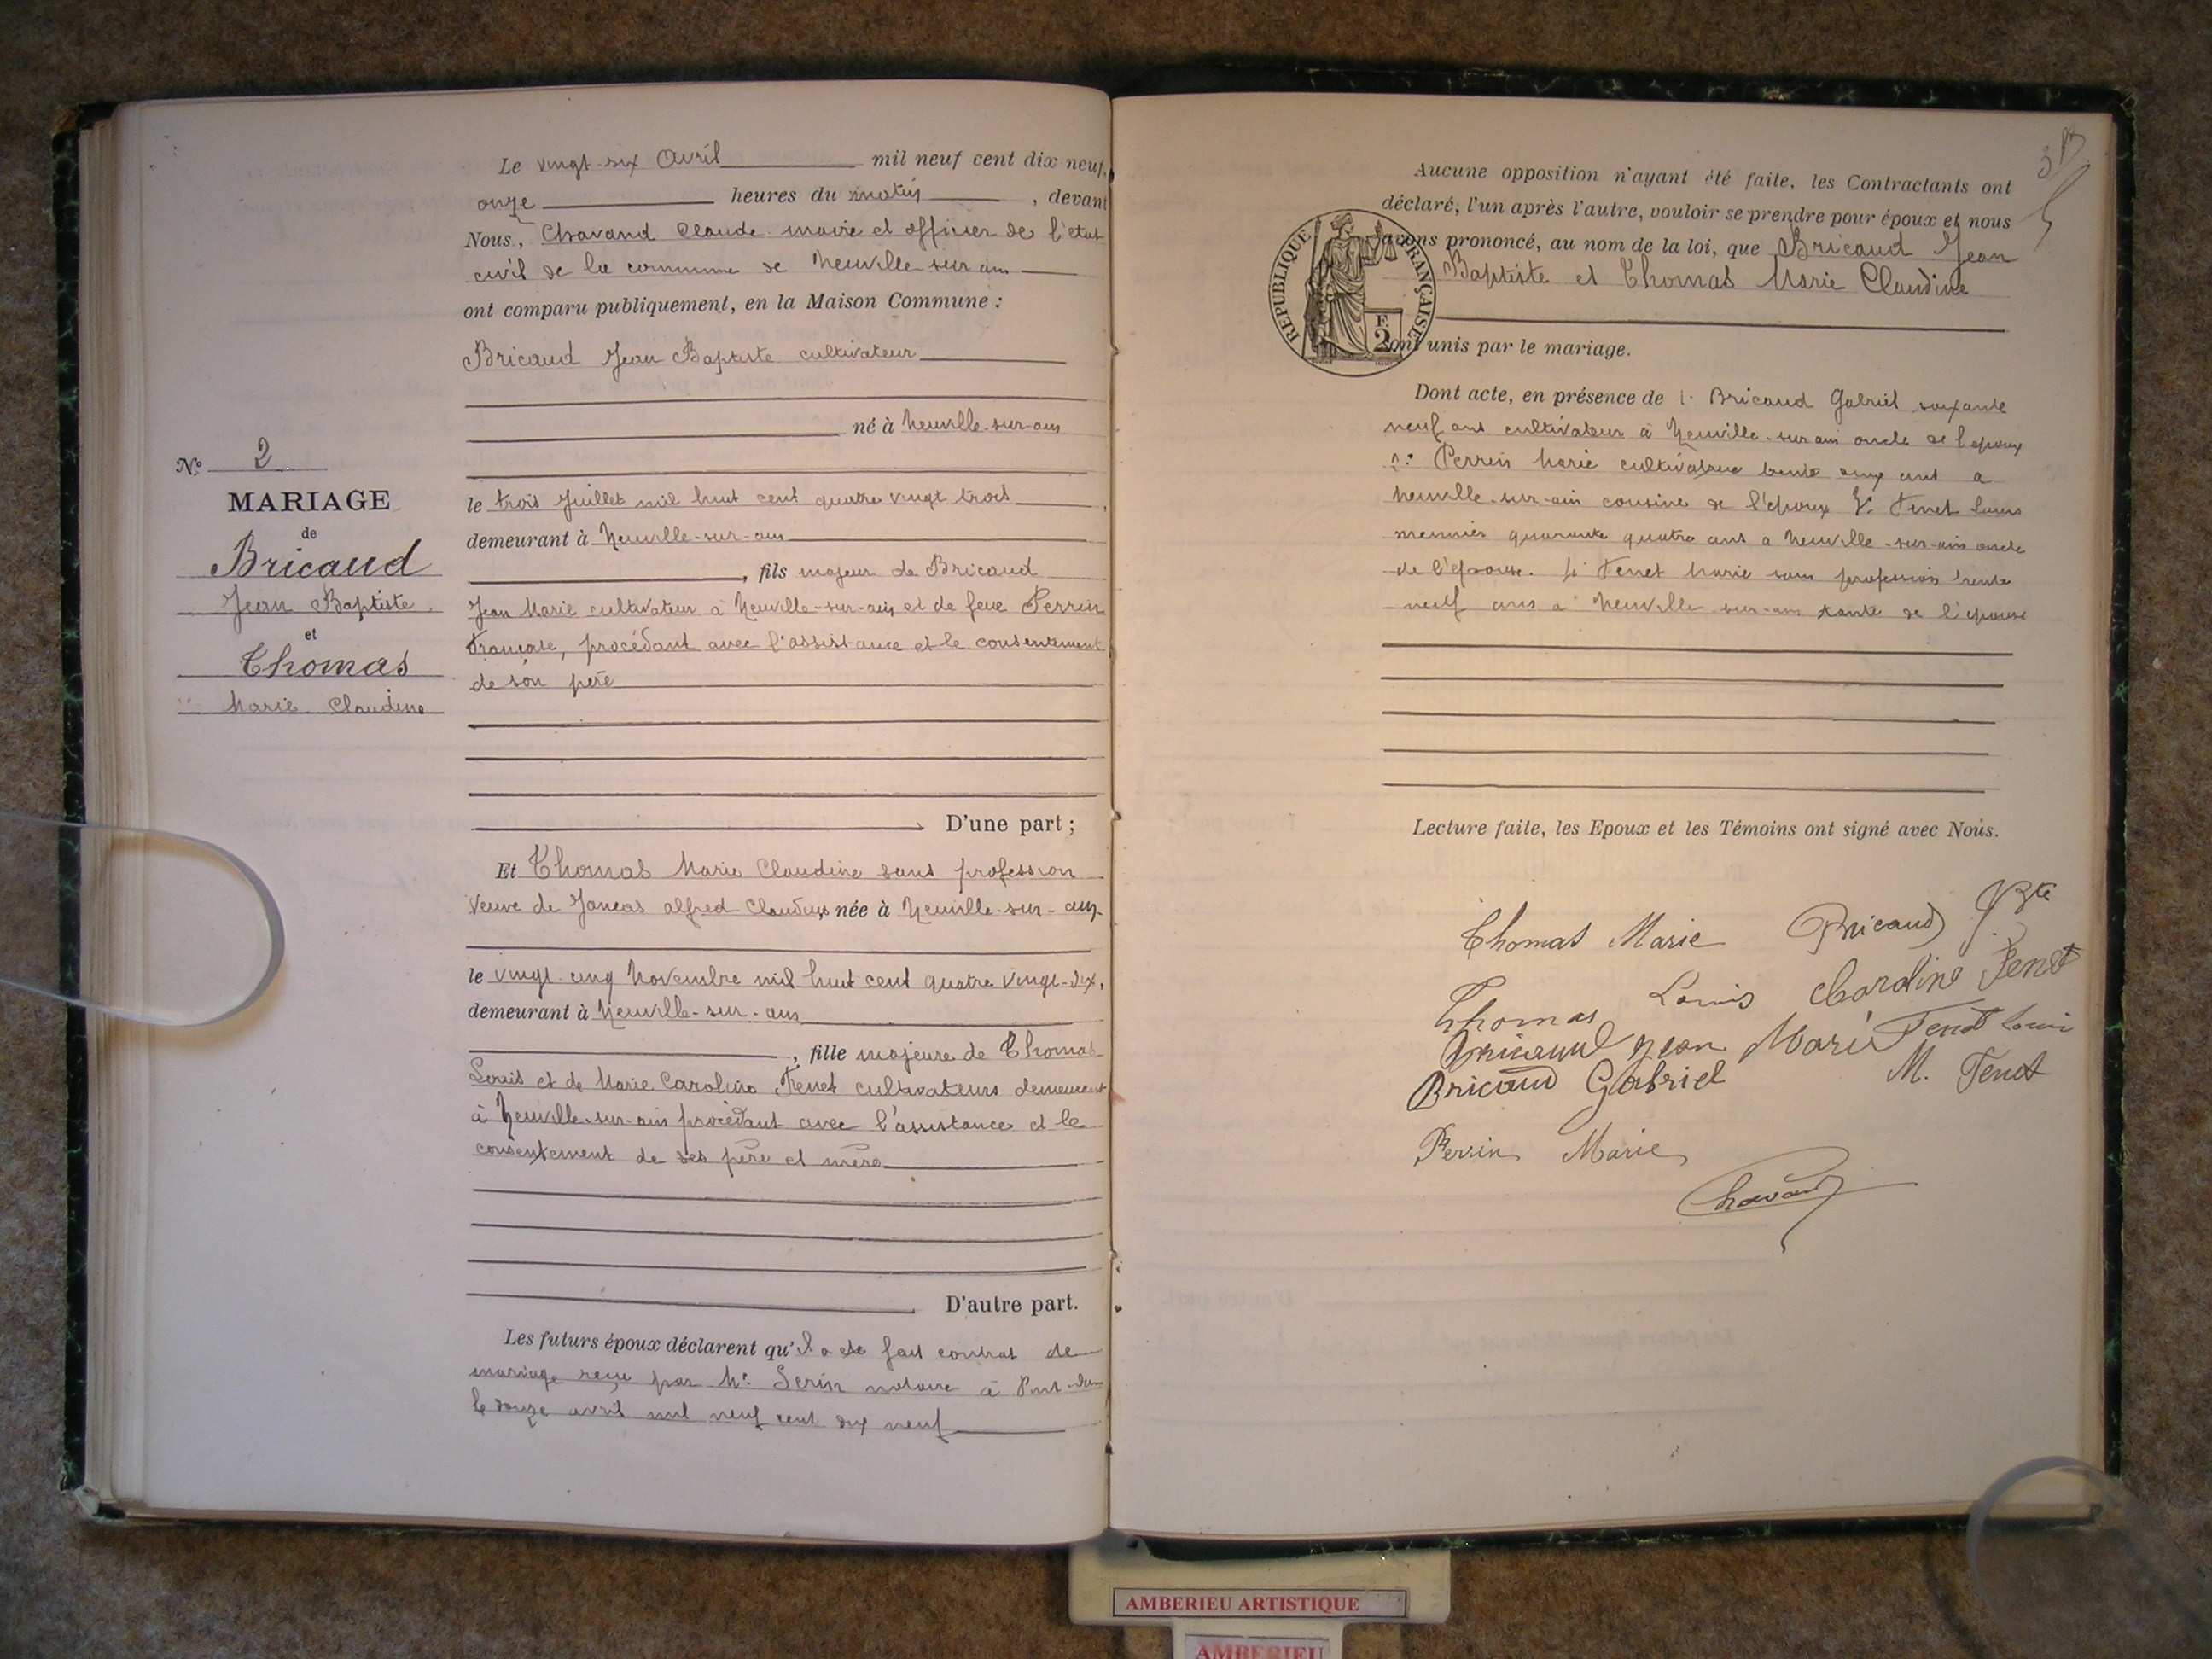 Le vingt six Avril mil neuf cent dix neuf,
onze heures du matin, devant
Nous, Chavand Claude maire et officier de l'état
civil de la commune de Neuville sur ain
ont comparu publiquement, en la Maison Commune :
Bricaud Jean Baptiste cultivateur
né à Neuville-sur-ain
le trois Juillet mil huit cent quatre vingt trois,
demeurant à Neuville-sur-ain
, fils majeur de Bricaud
Jean Marie cultivateur à Neuville-sur-ain et de feue Perrin
Françoise, procédant avec l'assistance et le consentement
de son père
D'une part ;
Et Thomas Marie Claudine sans profession
Veuve de alfred Claudius née à Neuville-sur-ain
le vingt-cinq Novembre mil huit cent quatre vingt-dix,
demeurant à Neuville-sur-ain
, fille majeure de Thomas
Louis et de Marie Caroline Tenet cultivateurs demeurant
à Neuville-sur-ain procédant avec l'assistance et le
consentement de ses père et mère
D'autre part.
Les futurs époux déclarent qu'il a été fait contrat de
mariage reçu par Me Serin notaire à Pont-dain
le douze avril mil neuf cent dix neuf
No 2
MARIAGE
de
Bricaud
Jean Baptiste
et
Thomas
Marie Claudine
Aucune opposition n'ayant été faite, les Contractants ont
déclaré, l'un après l'autre, vouloir se prendre pour époux et nous
avons prononcé, au nom de la loi, que Bricaud Jean
Baptiste et Thomas Marie Claudine
sont unis par le mariage.
RÉPUBLIQUE FRANÇAISE
E
2
Dont acte, en présence de 1. Bricaud Gabriel soixante
neuf ans cultivateur à Neuville-sur-ain oncle de l'époux
2: Perrin Marie cultivatrice trente ans a
Neuville-sur-ain cousine de l'époux 3: Tenet Louis
meunier quarante quatre ans a Neuville-sur-ain oncle
de l'épouse. 4: Tenet Marie sans profession trente
neuf ans a Neuville-sur-ain tante de l'épouse
Lecture faite, les Epoux et les Témoins ont signé avec Nous.
Thomas Marie Bricaud J. Bte
Thomas Louis Caroline Tenet
Bricaud Jean Marie Tenet Louis
Bricaud Gabriel M. Tenet
Perrin Marie
Chavand
AMBERIEU ARTISTIQUE
AMBERIEU